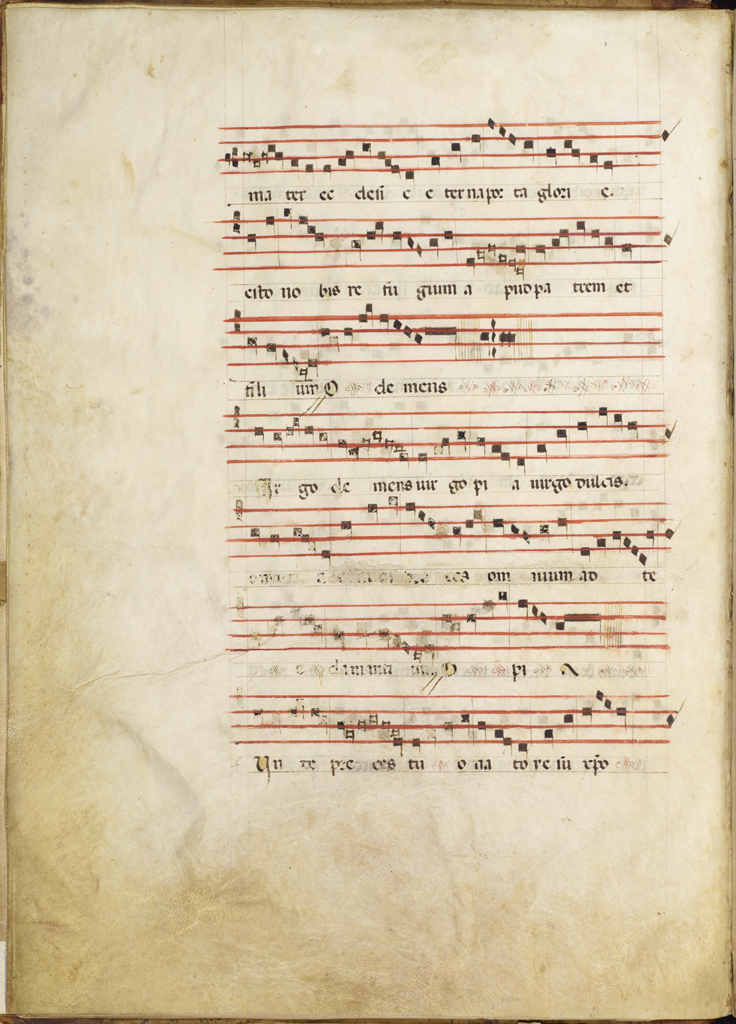 ma ter ec clesi e e ter na por ta glori e.
esto no bis re fu gium a pud pa trem et
fili um O de mens
Vir go cle mens vir go pi a virgo dulcis.
om nium ad te
e clamancium O pi A
Fun de pre ces tu o na to re su xpo